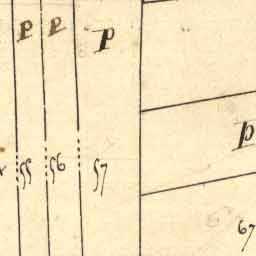 p p p
p
55 56 57
67